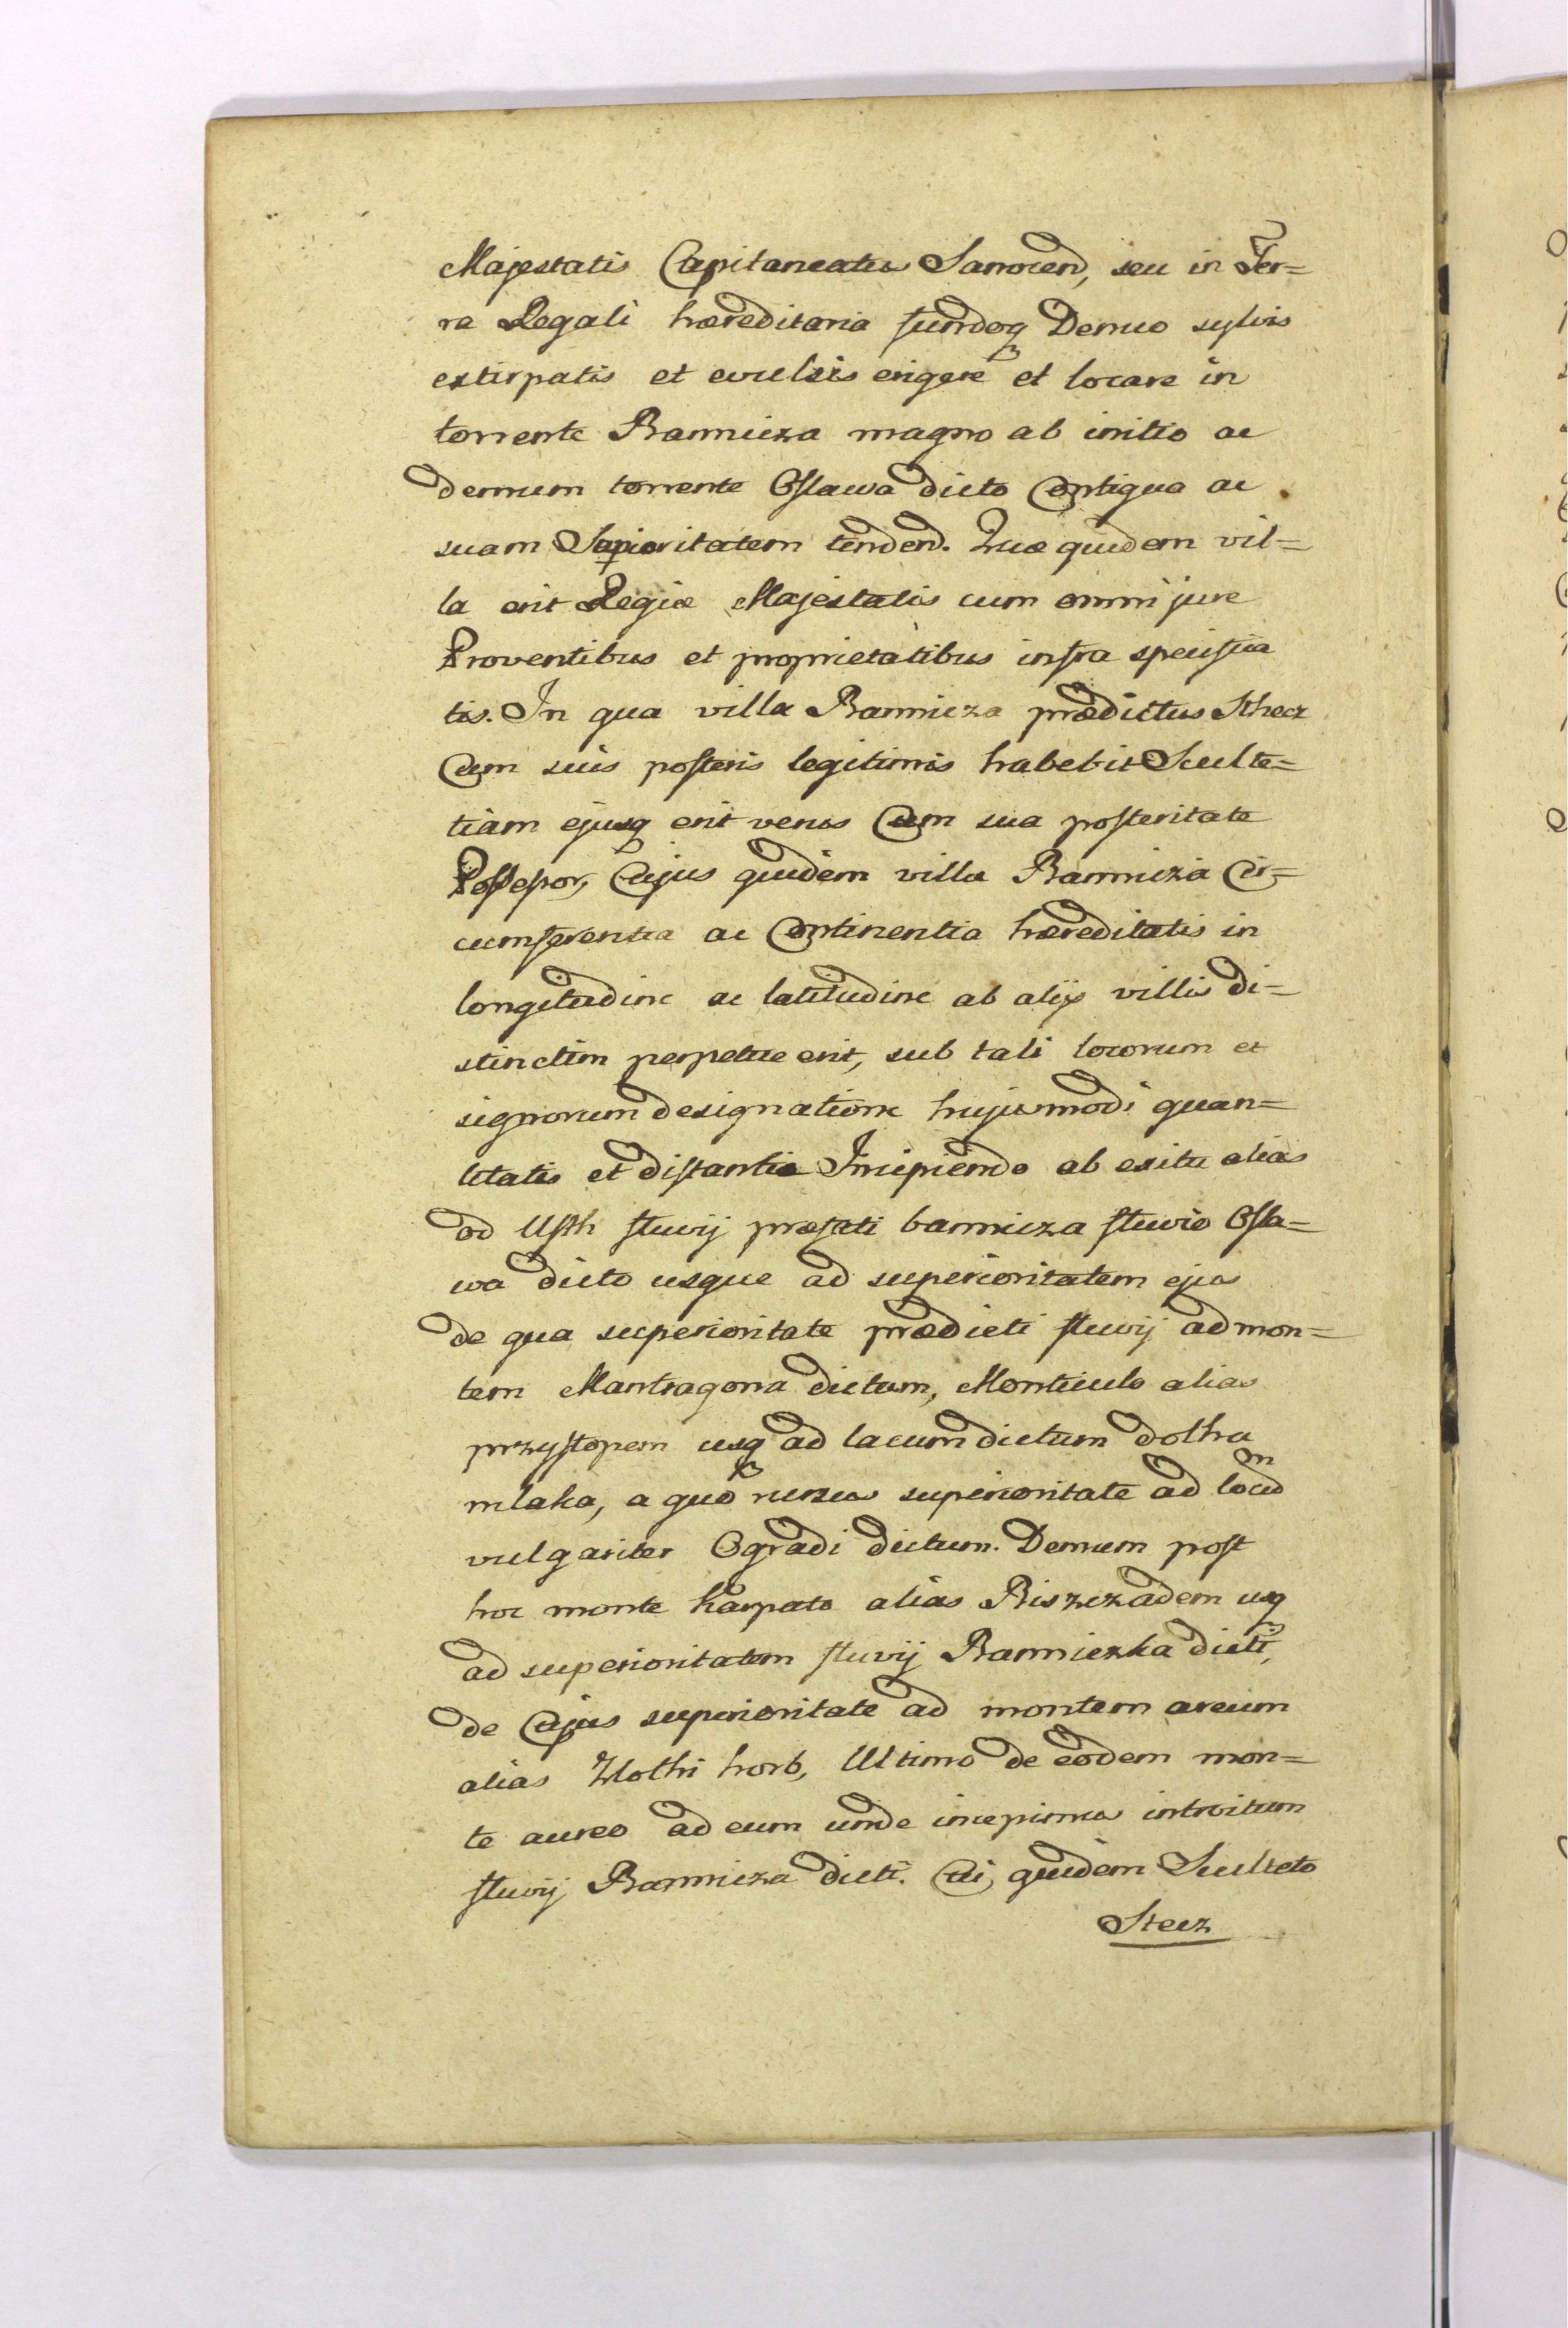 Majestatis Capitaneatus Sanocen, seu in Ter=
ra Regali hæreditaria fundoq Denuo sylvis
extirpatis et evulsis erigere et locare in
torrente Bannicza magno ab initio ac
demum torrente Oslawa dicto Contiguo ac
suam Supioritatem tenden. Quæ quidem vil=
la erit Regiæ Majestatis cum omni jure
Proventibus et proprietatibus infra specifica
tis. In qua villa Bannicza prædictus Sthecz
Cum suis posteris legitimis habebit Sculte=
tiam ejusq erit verus Cum sua posteritate
Possessor, Cujus quidem villa Bannicza Cir=
cumferentia ac Continentia hæreditatis in
longitudine ac latitudine ab alijs villis di=
stinctim perpetue erit, sub tali locorum et
signorum designatione hujusmodi quan=
titatis et distantia Incipiendo ab exitu alias
od Usth fluvij præfati bannicza fluvio Osla=
wa dicto usque ad superioritatem ejus
de qua superioritate prædicti fluvij ad mon=
tem Mantragona dictum, Monticulo alias
przystopem usq ad lacum dictum dolha
mlaka, a quo rursus superioritate ad locum
vulgariter Ogradi dictum. Demum post
hoc monte Karpato alias Biszczadem usq
ad superioritatem fluvij Banniczka dicti,
de Cujus superioritate ad montem areum
alias Zlothi horb, Ultimo de eodem mon=
te aureo ad eum unde incepimus introitum
fluvij Bannicza dicti. Cui quidem Sculteto
Stecz